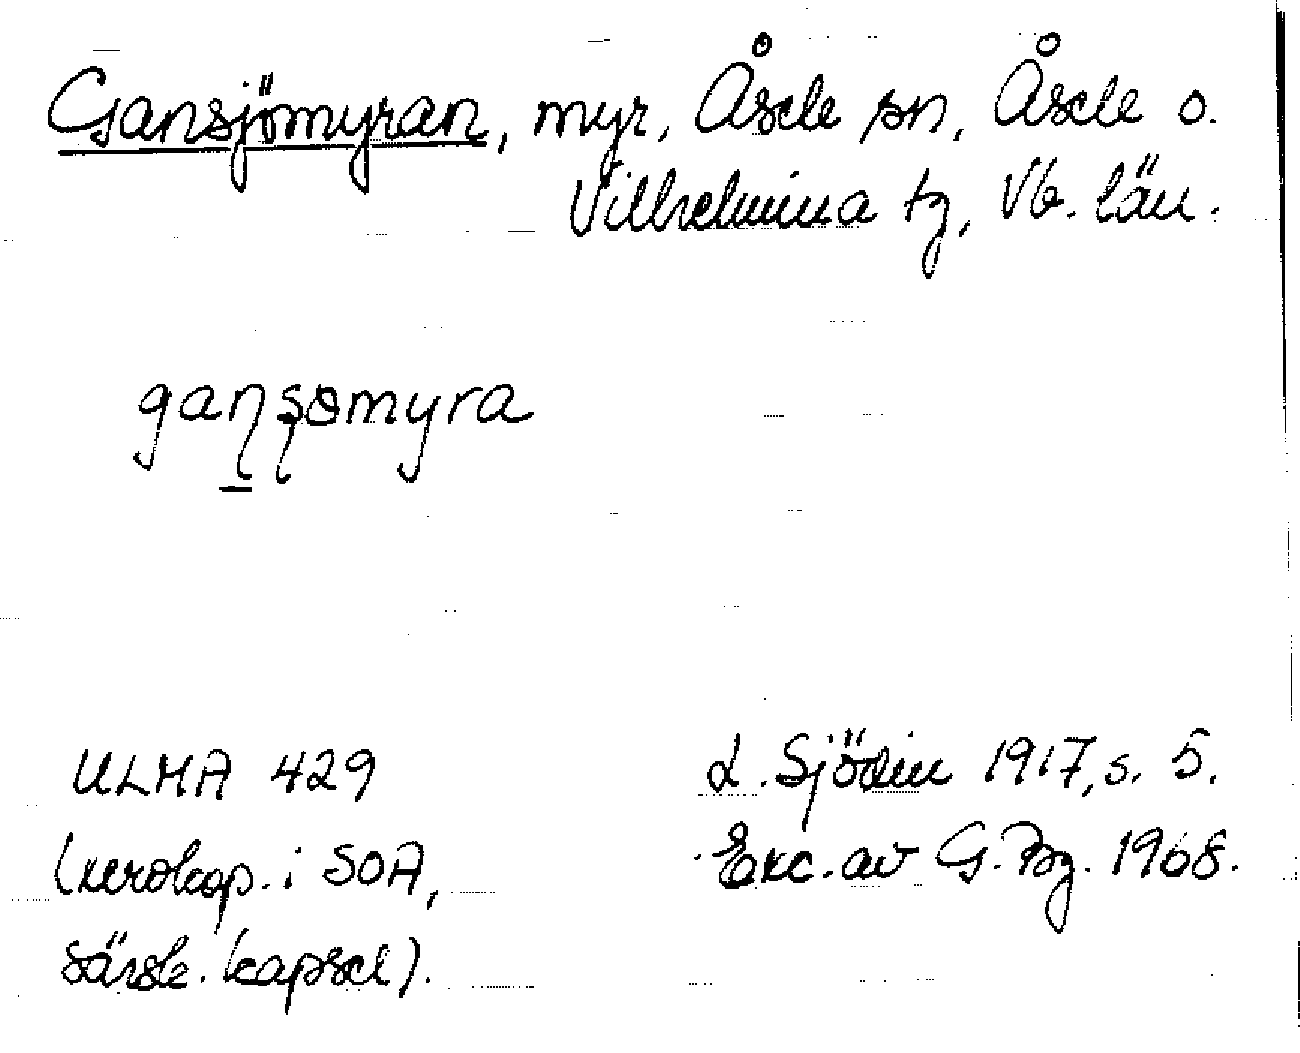 Gansjömyran, myr, Åsele sn, Åsele o.
Vilhelmina tg, Vb. län.
gaṉşəmyra
ULMA 429
(xerokop. i SOA,
särsk. kapsel).
L. Sjödin 1917, s. 5.
Exc. av G. Pzg. 1968.